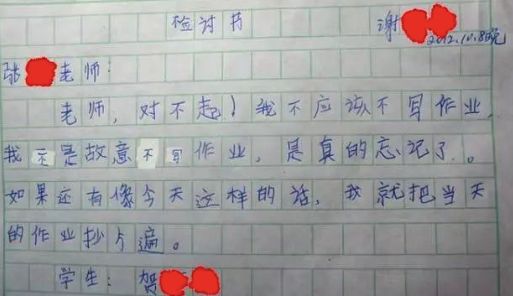 检讨书 谢
2012.10.8晚
张 老师：
老师，对不起！我不应该不写作业，
我不是故意不写作业，是真的忘记了。
如果还有像今天这样的话，我就把当天
的作业抄 遍。
学生：贺